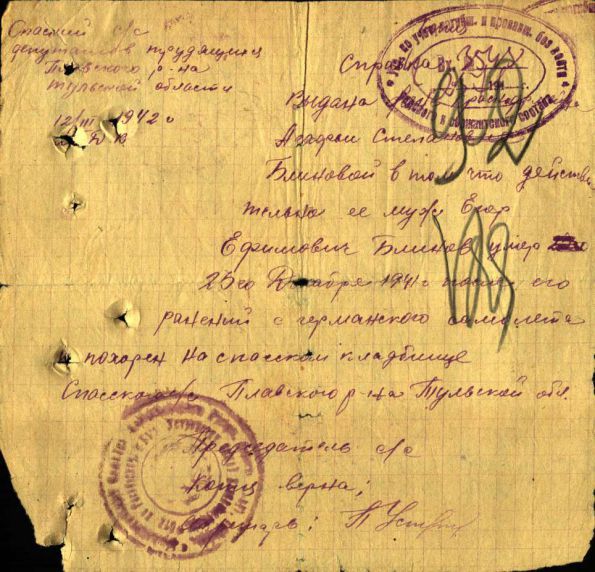 Спаский с/с
депутатов трудящихся
Плавского р-на
Тульской области
12/III 1942 г
№
Справка
Вх. 3548
по учету
Выдана
Агафьи Степановне
Блиновой в том что действи
тельно ее муж Егор
Ефимович Блинов умер
25-го Декабря 1941 г после его
ранений с германского самолета
похорен на спасском кладбище
Спасского с/с Плавского р-на Тульской обл.
Председатель с/с
Копия верна:
Секретарь: